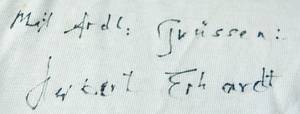 Mit frdl: Grüssen:
Herbert Erhardt